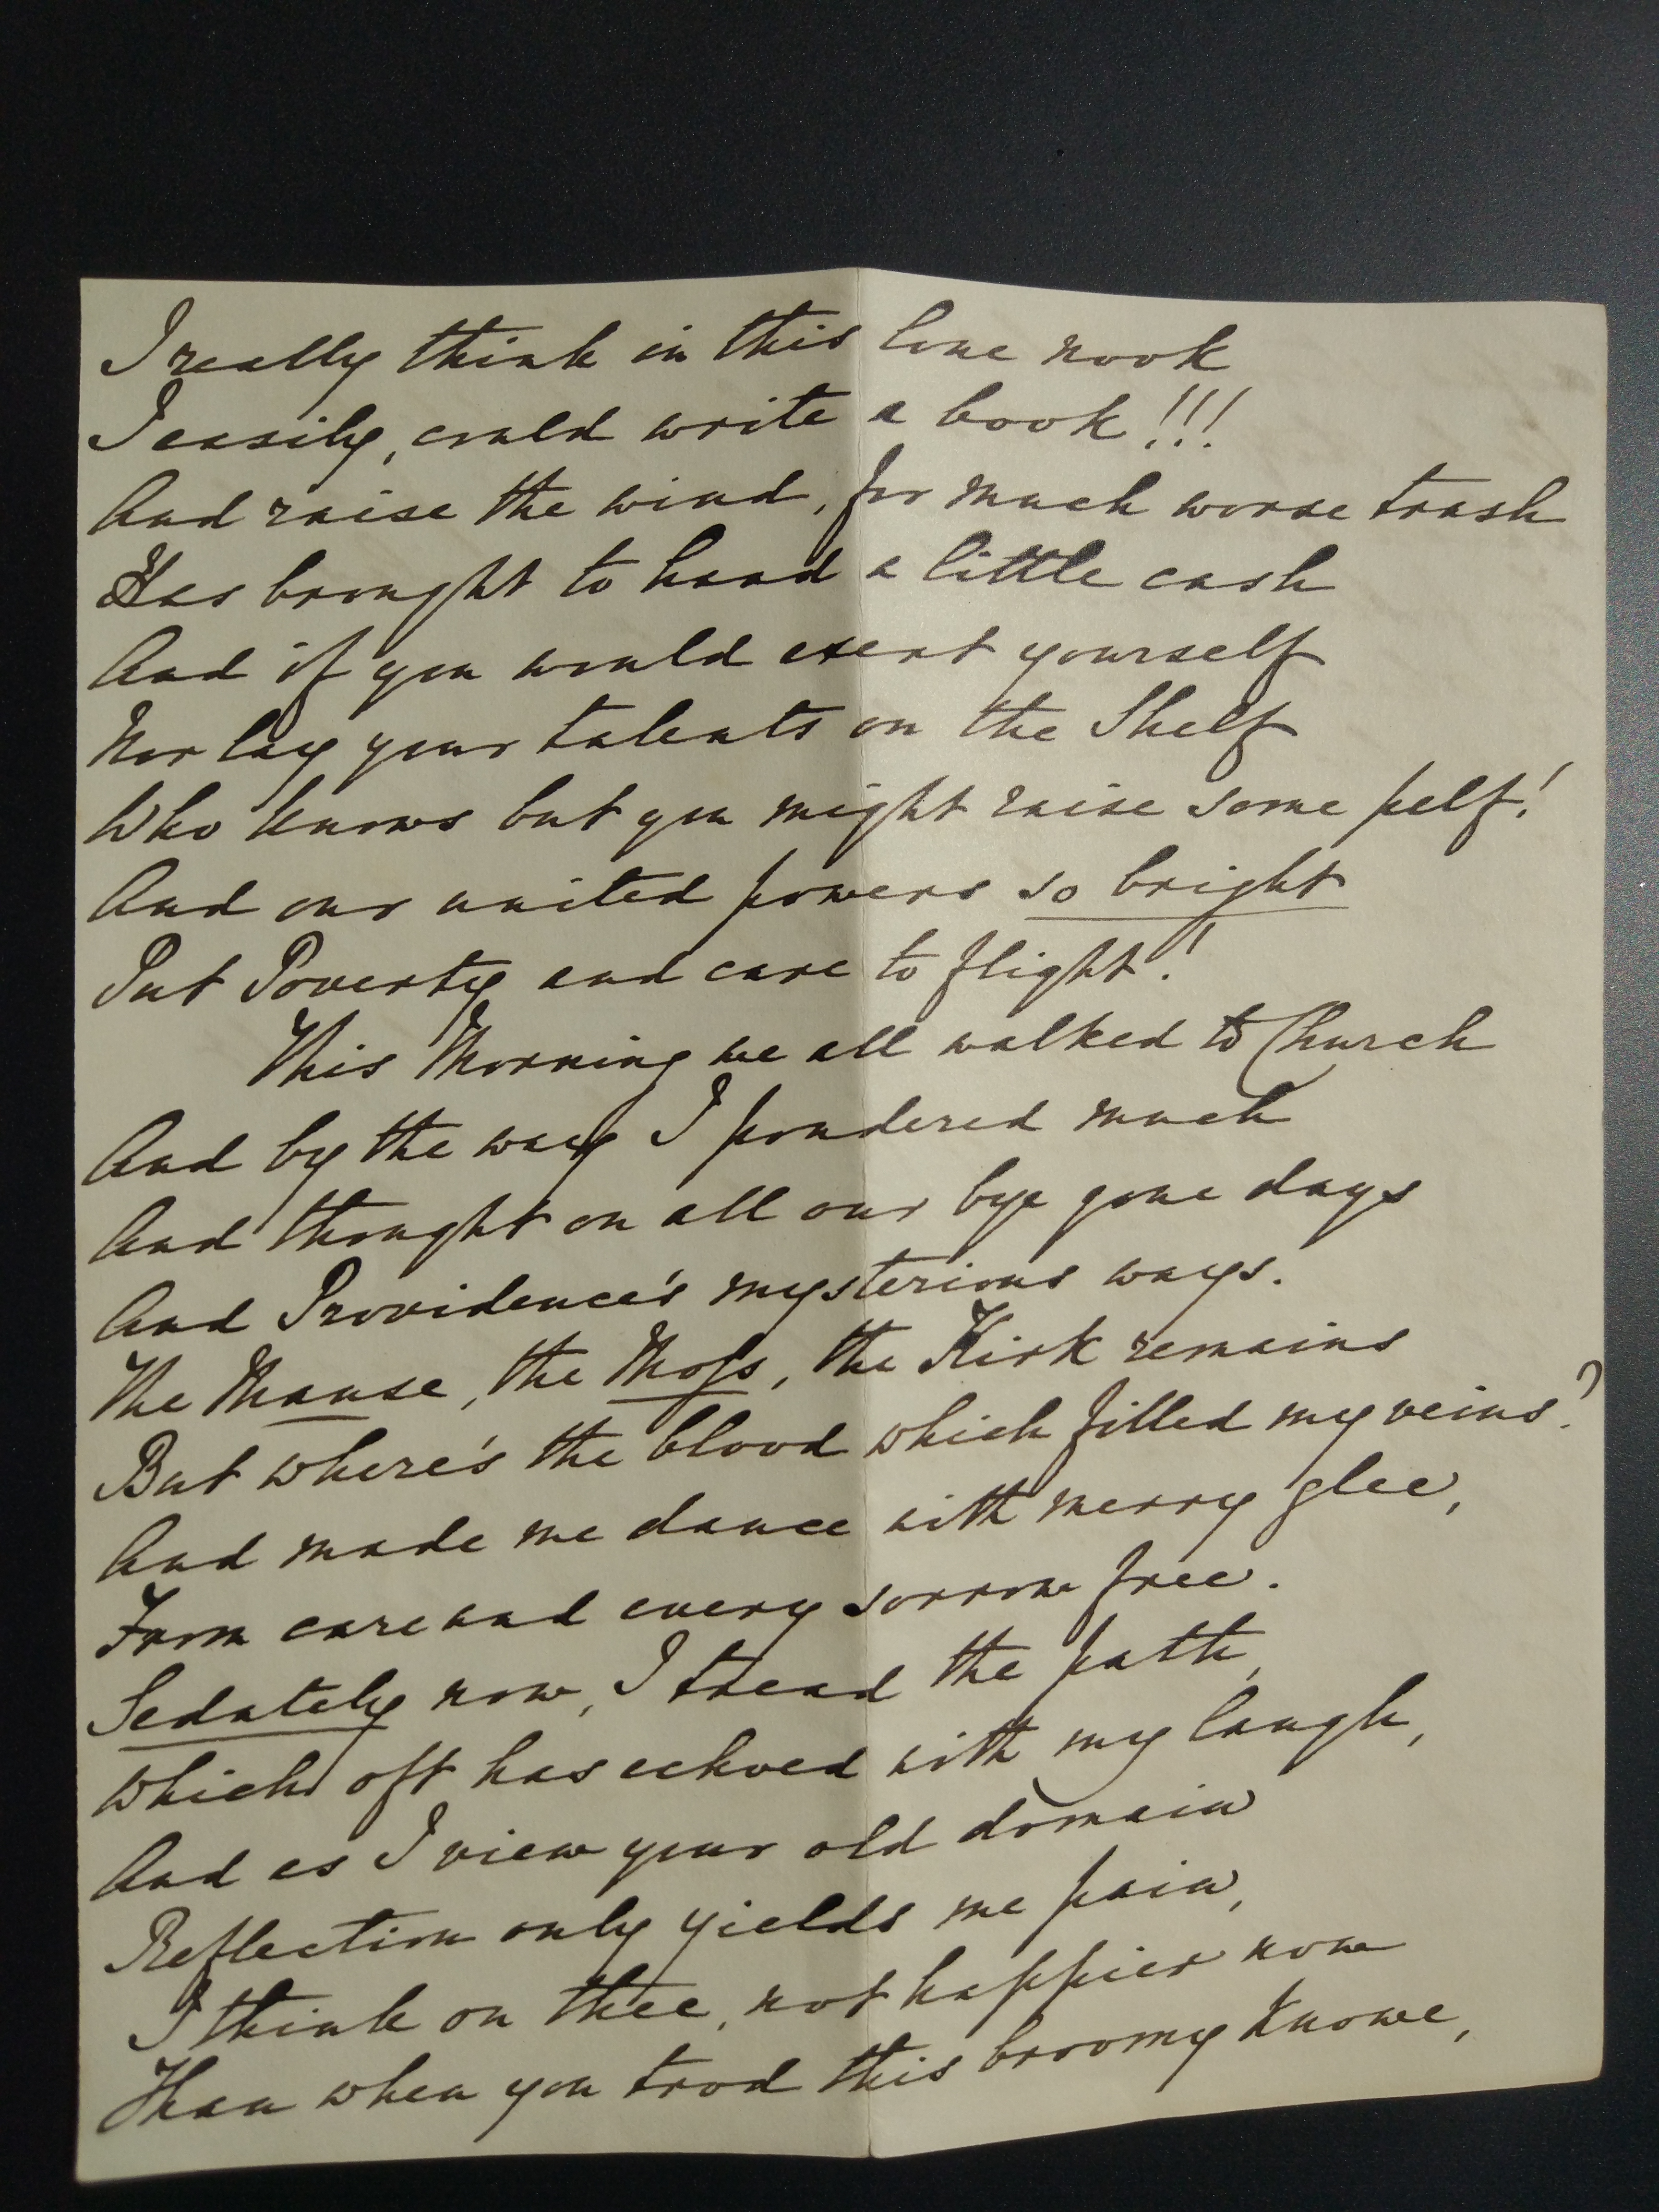 I really think in this lone nook
I easily, could write a book!!!
And raise the wind, for much worse trash
Has brought to hand a little cash
And if you would exert yourself
Nor lay your talents on the Shelf
Who knows but you might raise some pelf!
And our united powers so bright
Put Poverty and care to flight!
This Morning we all walked to Church
And by the way I pondered much
And thought on all our bye gone days
And Providence's mysterious ways.
The Manse, the Moss, the Kirk remains
But where's the blood which filled my veins?
And made me dance with merry glee,
From care and every sorrow free.
Sedately now, I tread the path,
Which oft has echoed with my laugh,
And as I view your old domain
Reflection only yields me pain,
I think on thee, not happier now
Than when you trod this broomy Knowe,